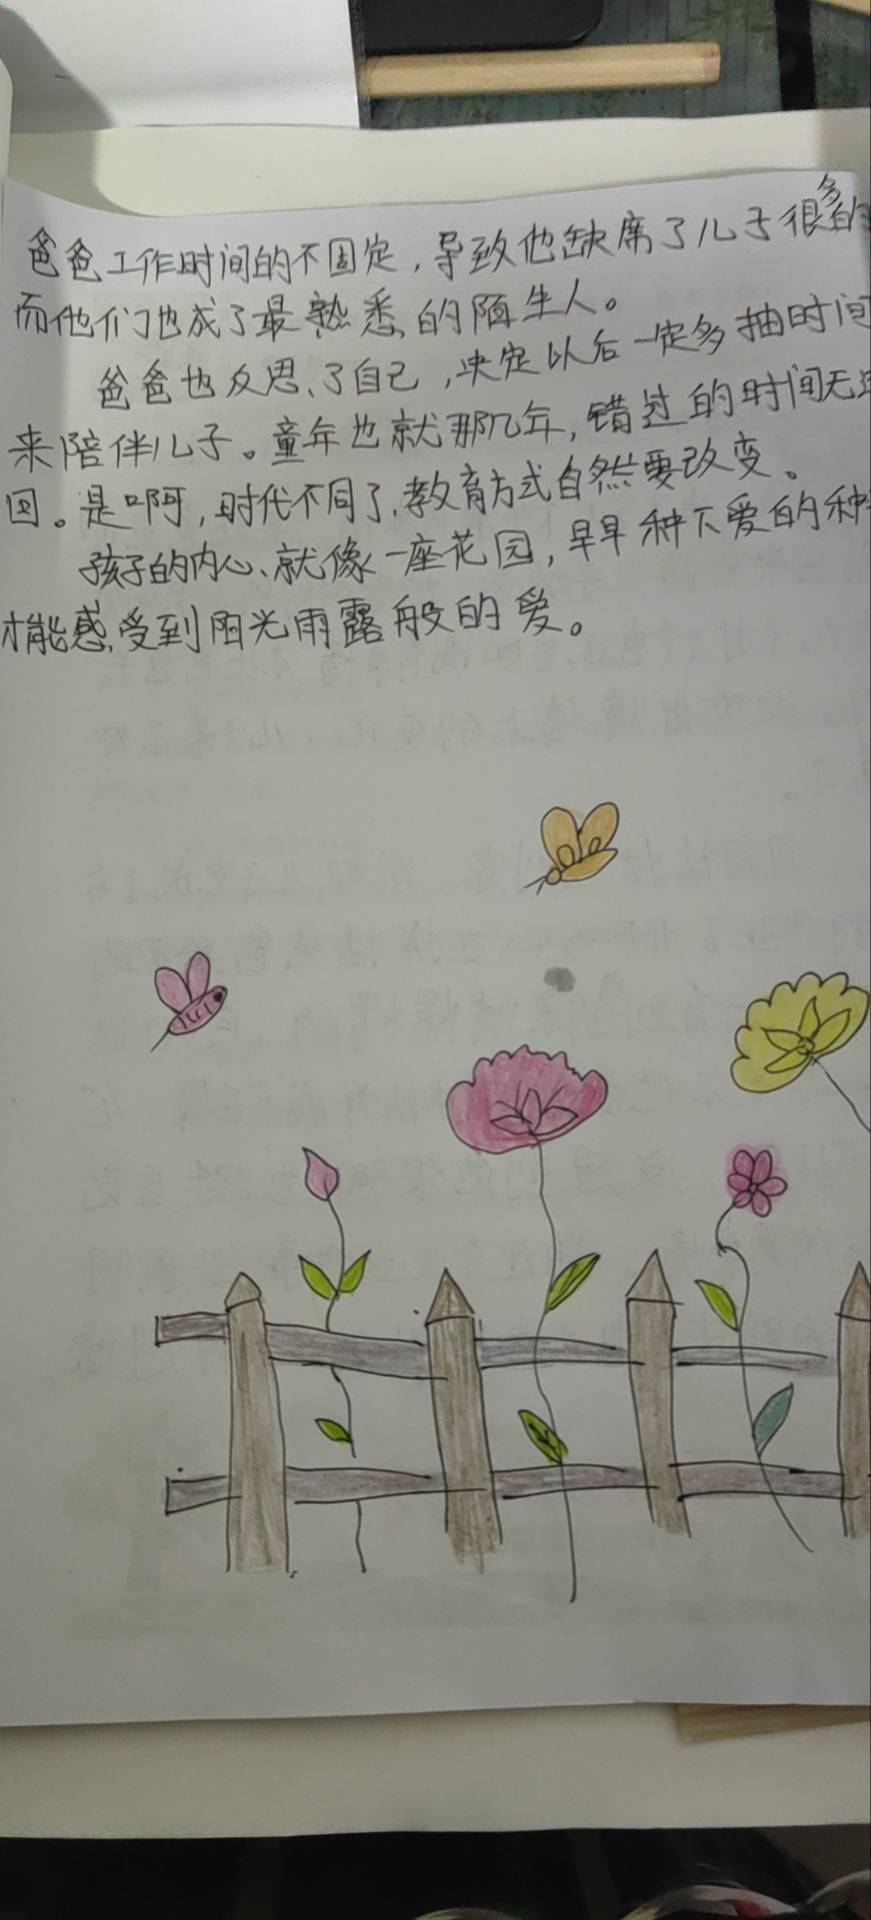 爸爸工作时间的不固定，导致他缺席了儿子很多的
而他们也成了最熟悉的陌生人。
爸爸也反思了自己，决定以后一定多抽时间
来陪伴儿子。童年也就那几年，错过的时间无
回。是啊，时代不同了，教育方式自然要改变。
孩子的内心、就像一座花园，早早种下爱的种
才能感受到阳光雨露般的爱。